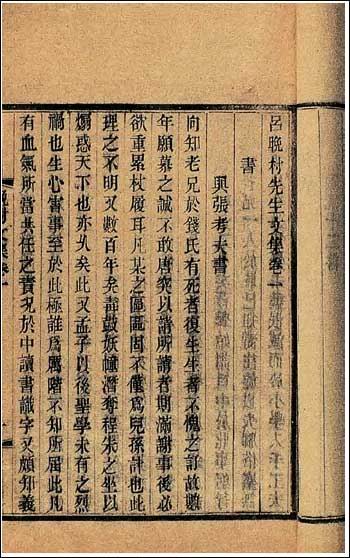 呂晚村先生文集卷一
書
與張考夫書
向知老兄於錢氏有死者復生生者不愧之許故數
年願慕之誠不敢唐突以請所請者則滿謝事後必
欲重累杖履耳凡某之區區固不僅為兒孫計也此
理之不明又數百年矣毒鼓妖幢潛奪程朱之坐以
煽惑天下也亦久矣此又孟子以後聖學未有之烈
禍也生心害事至於此極誰為厲階不知所屆此凡
有血氣所當共任之責況於中讀書識字又頗知義